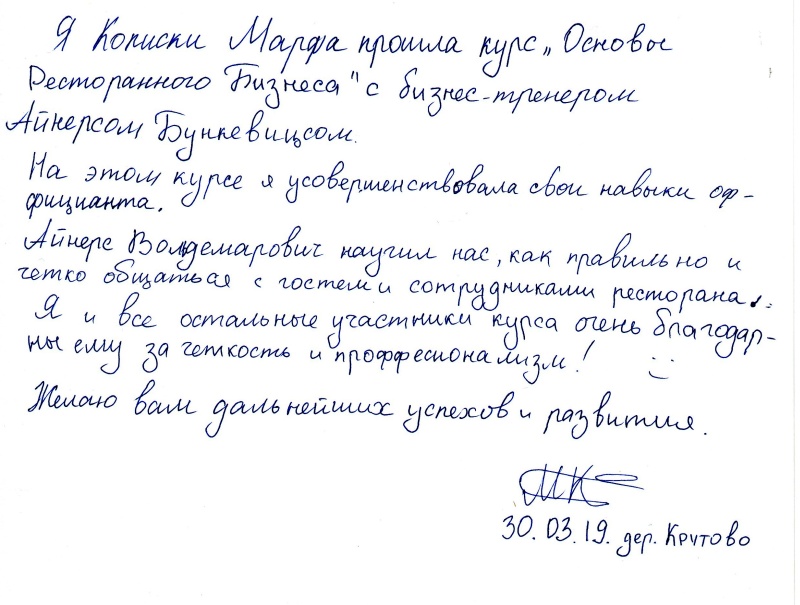 Я Кописки Марфа прошла курс „Основы
Ресторанного Бизнеса" с бизнес-тренером
Айнерсом Бункевицсом.
На этом курсе я усовершенствовала свои навыки оф-
фицианта.
Айнерс Волдемарович научил нас, как правильно и
четко общаться с гостем и сотрудниками ресторана.
Я и все остальные участники курса очень благодар-
ны ему за четкость и проффесионализм!
Желаю вам дальнейших успехов и развития.
МК
30.03.19. дер. Крутово